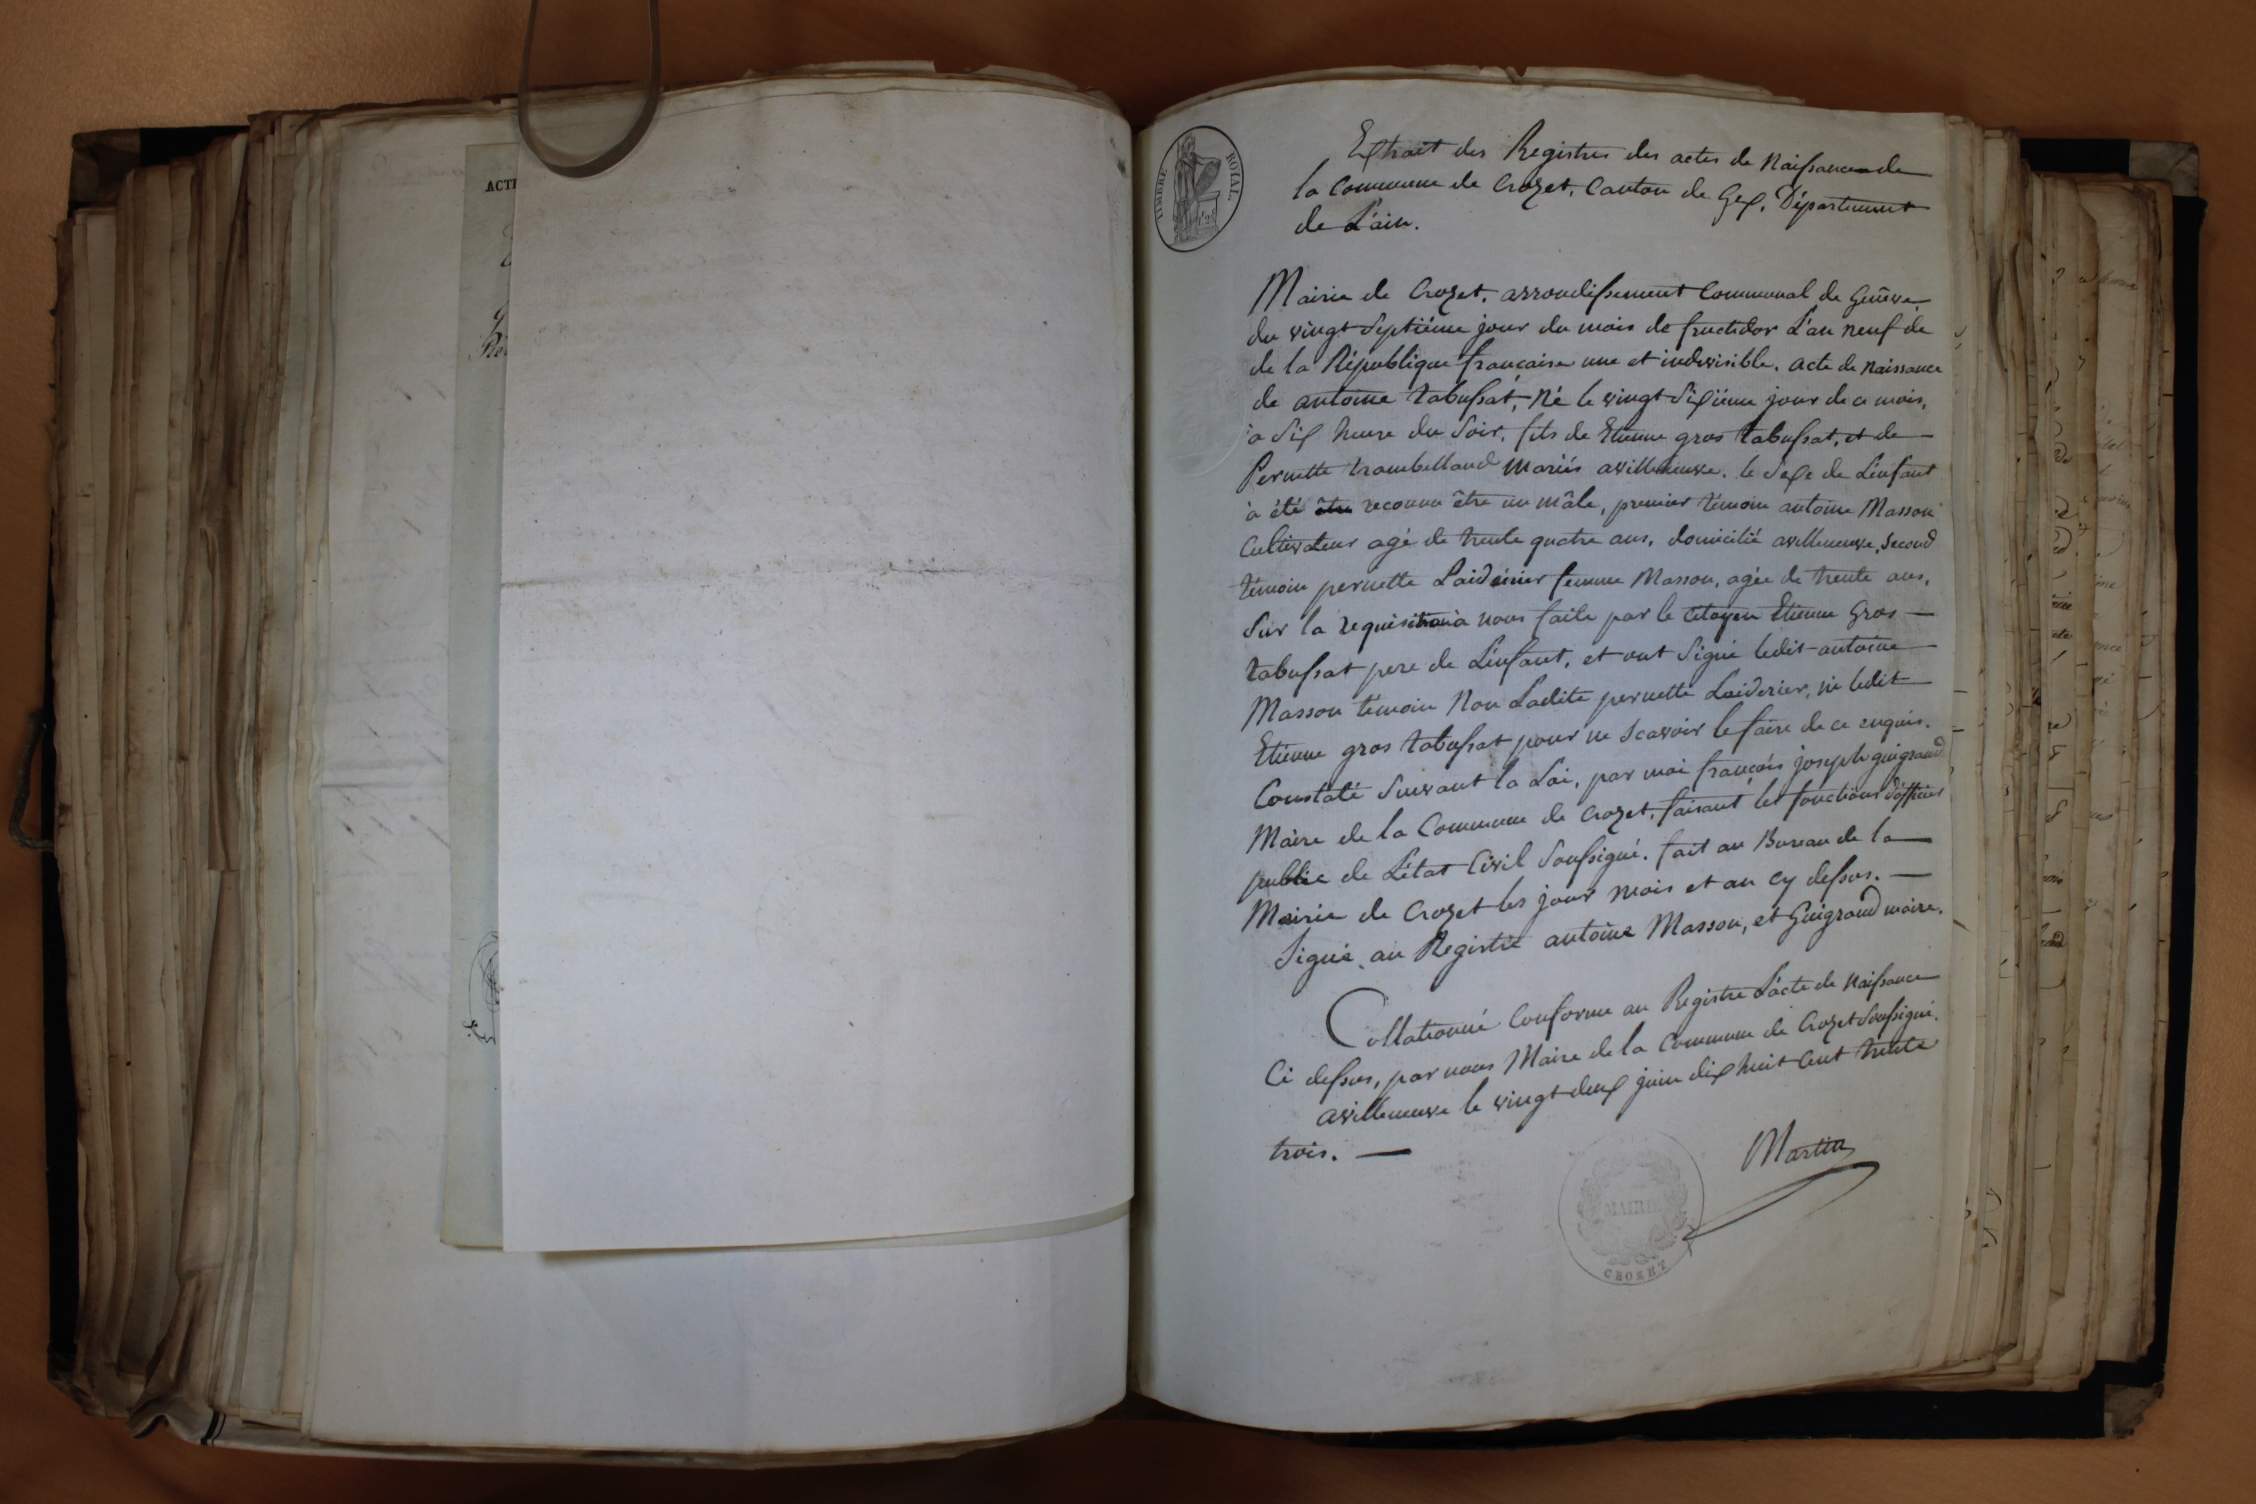 ACTE
TIMBRE ROYAL
Extrait des Registres des actes de Naissance de
la Commune de Crozet, Canton de Gex, Département
de L'ain.
Mairie de Crozet, arrondissement Communal de Genève
du vingt Septième jour du mois de fructidor L'an neuf de
de la République française une et indivisible. acte de naissance
de antoine tabussat, Né le vingt Sixième jour de ce mois,
à Six heure du Soir, fils de Etienne gros tabussat, et de
Pernette trambelland mariés avilleneuve. le Sexe de L'enfant
à été être reconnu être un mâle, premier témoin antoine Masson
Cultivateur agé de trente quatre ans, domicilié avilleneuve, Second
témoin pernette Laiderier femme Masson, agée de trente ans,
Sur la requisition à nous faite par le Citoyen Etienne Gros
tabussat pere de L'enfant, et ont Signé ledit antoine
Masson témoin Non Ladite pernette Laiderier, ni ledit
Etienne gros tabussat pour ne Scavoir le faire de ce enquis.
Constaté Suivant la Loi, par moi françois joseph guigrand
Maire de la Commune de Crozet, faisant les fonctions d'officier
public de L'état Civil Soussigné. fait au Bureau de la
Mairie de Crozet les jour mois et an cy dessus.
Signé au Registre antoine Masson, et Guigrand maire.
Collationné Conforme au Registre L'acte de Naissance
Ci dessus, par nous Maire de la Commune de Crozet Soussigné.
avilleneuve le vingt deux juin dix huit Cent trente
trois.
Martin
MAIRIE
CROZET